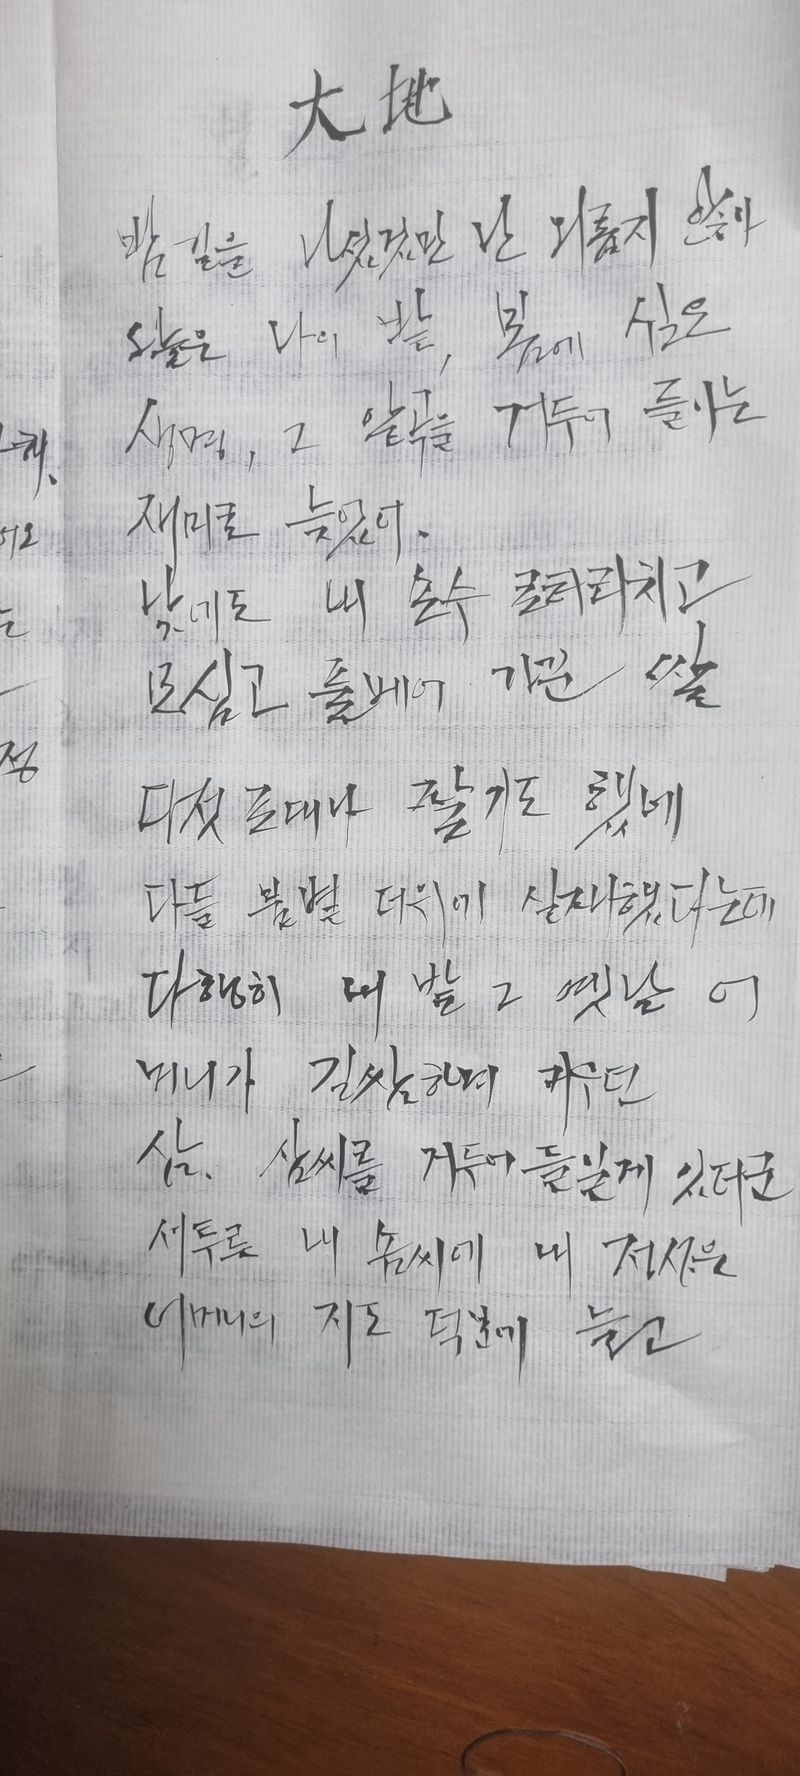 大地
밤길을 나섰것만 난 외롭지 않아
오늘은 나의 밭, 봄에 심은
생명, 그 알곡을 거두어 들이는
재미로 늦었어.
낮에도 내 손수
모심고 풀베어 가꾼 쌀
다섯 포대나 팔기도 했네
다들 불볕 더위에 실패했다는데
다행히 내 밭 그 옛날 어
머니가 길쌈하며 키우던
삼. 삼씨를 거두어 들일게 있다군
서투른 내 솜씨에 내 정성은
어머니의 지도 덕분에 늘고
해.
어요
는
정